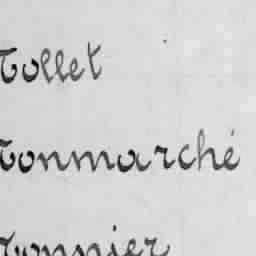 Tollet
Tonmarché
Tonnier